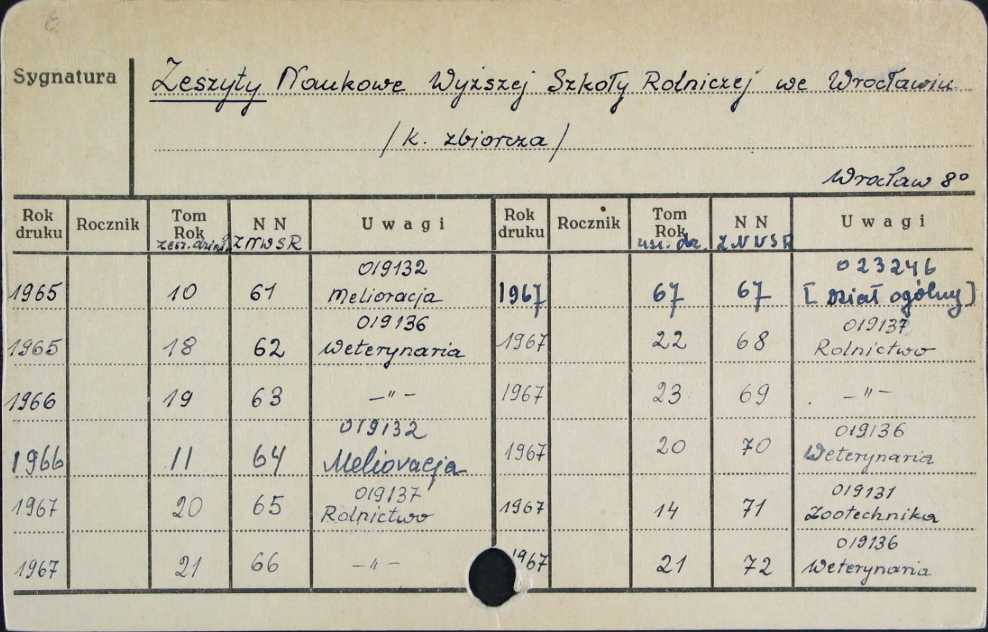 Sygnatura
Zeszyty Naukowe Wyższej Szkoły Rolniczej we Wrocławiu
/k. zbiorcza/
Wrocław 8°
Rok druku Rocznik Tom Rok N N Uwagi Rok druku Rocznik Tom Rok N N Uwagi
zesz. Z N W S R Z N W S R
1965 10 61 019132 Melioracja 1967 67 67 023246 [Dział ogólny]
1965 18 62 019136 Weterynaria 1967 22 68 019137 Rolnictwo
1966 19 63 –"– 1967 23 69 –"–
1966 11 64 019132 Melioracja 1967 20 70 019136 Weterynaria
1967 20 65 019137 Rolnictwo 1967 14 71 019131 Zootechnika
1967 21 66 –"– 1967 21 72 019136 Weterynaria